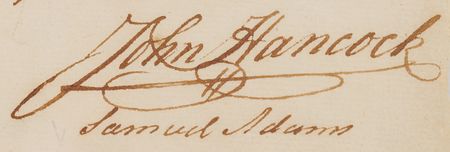 John Hancock
Samuel Adams